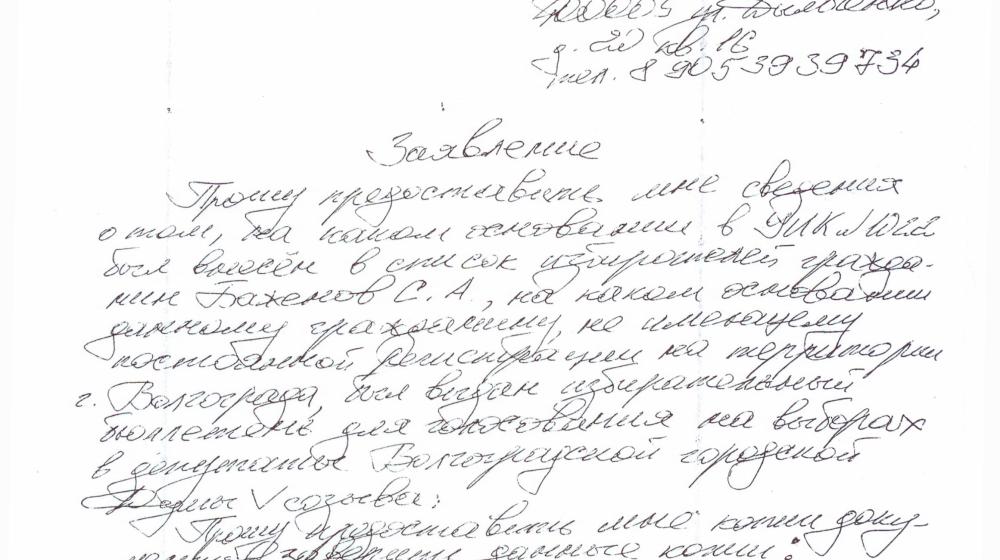 400005
д. 20 кв. 16
тел. 8 9053939734
Заявление
Прошу предоставить мне сведения
о том, на каком основании в УИК №1022
был внесён в список избирателей гражда-
нин Баженов С. А., на каком основании
данному гражданину, не имеющему
постоянной регистрации на территории
г. Волгограда, был выдан избирательный
бюллетень для голосования на выборах
в депутаты Волгоградской городской
Думы V созыва:
Прошу предоставить мне копии доку-
данные копии: